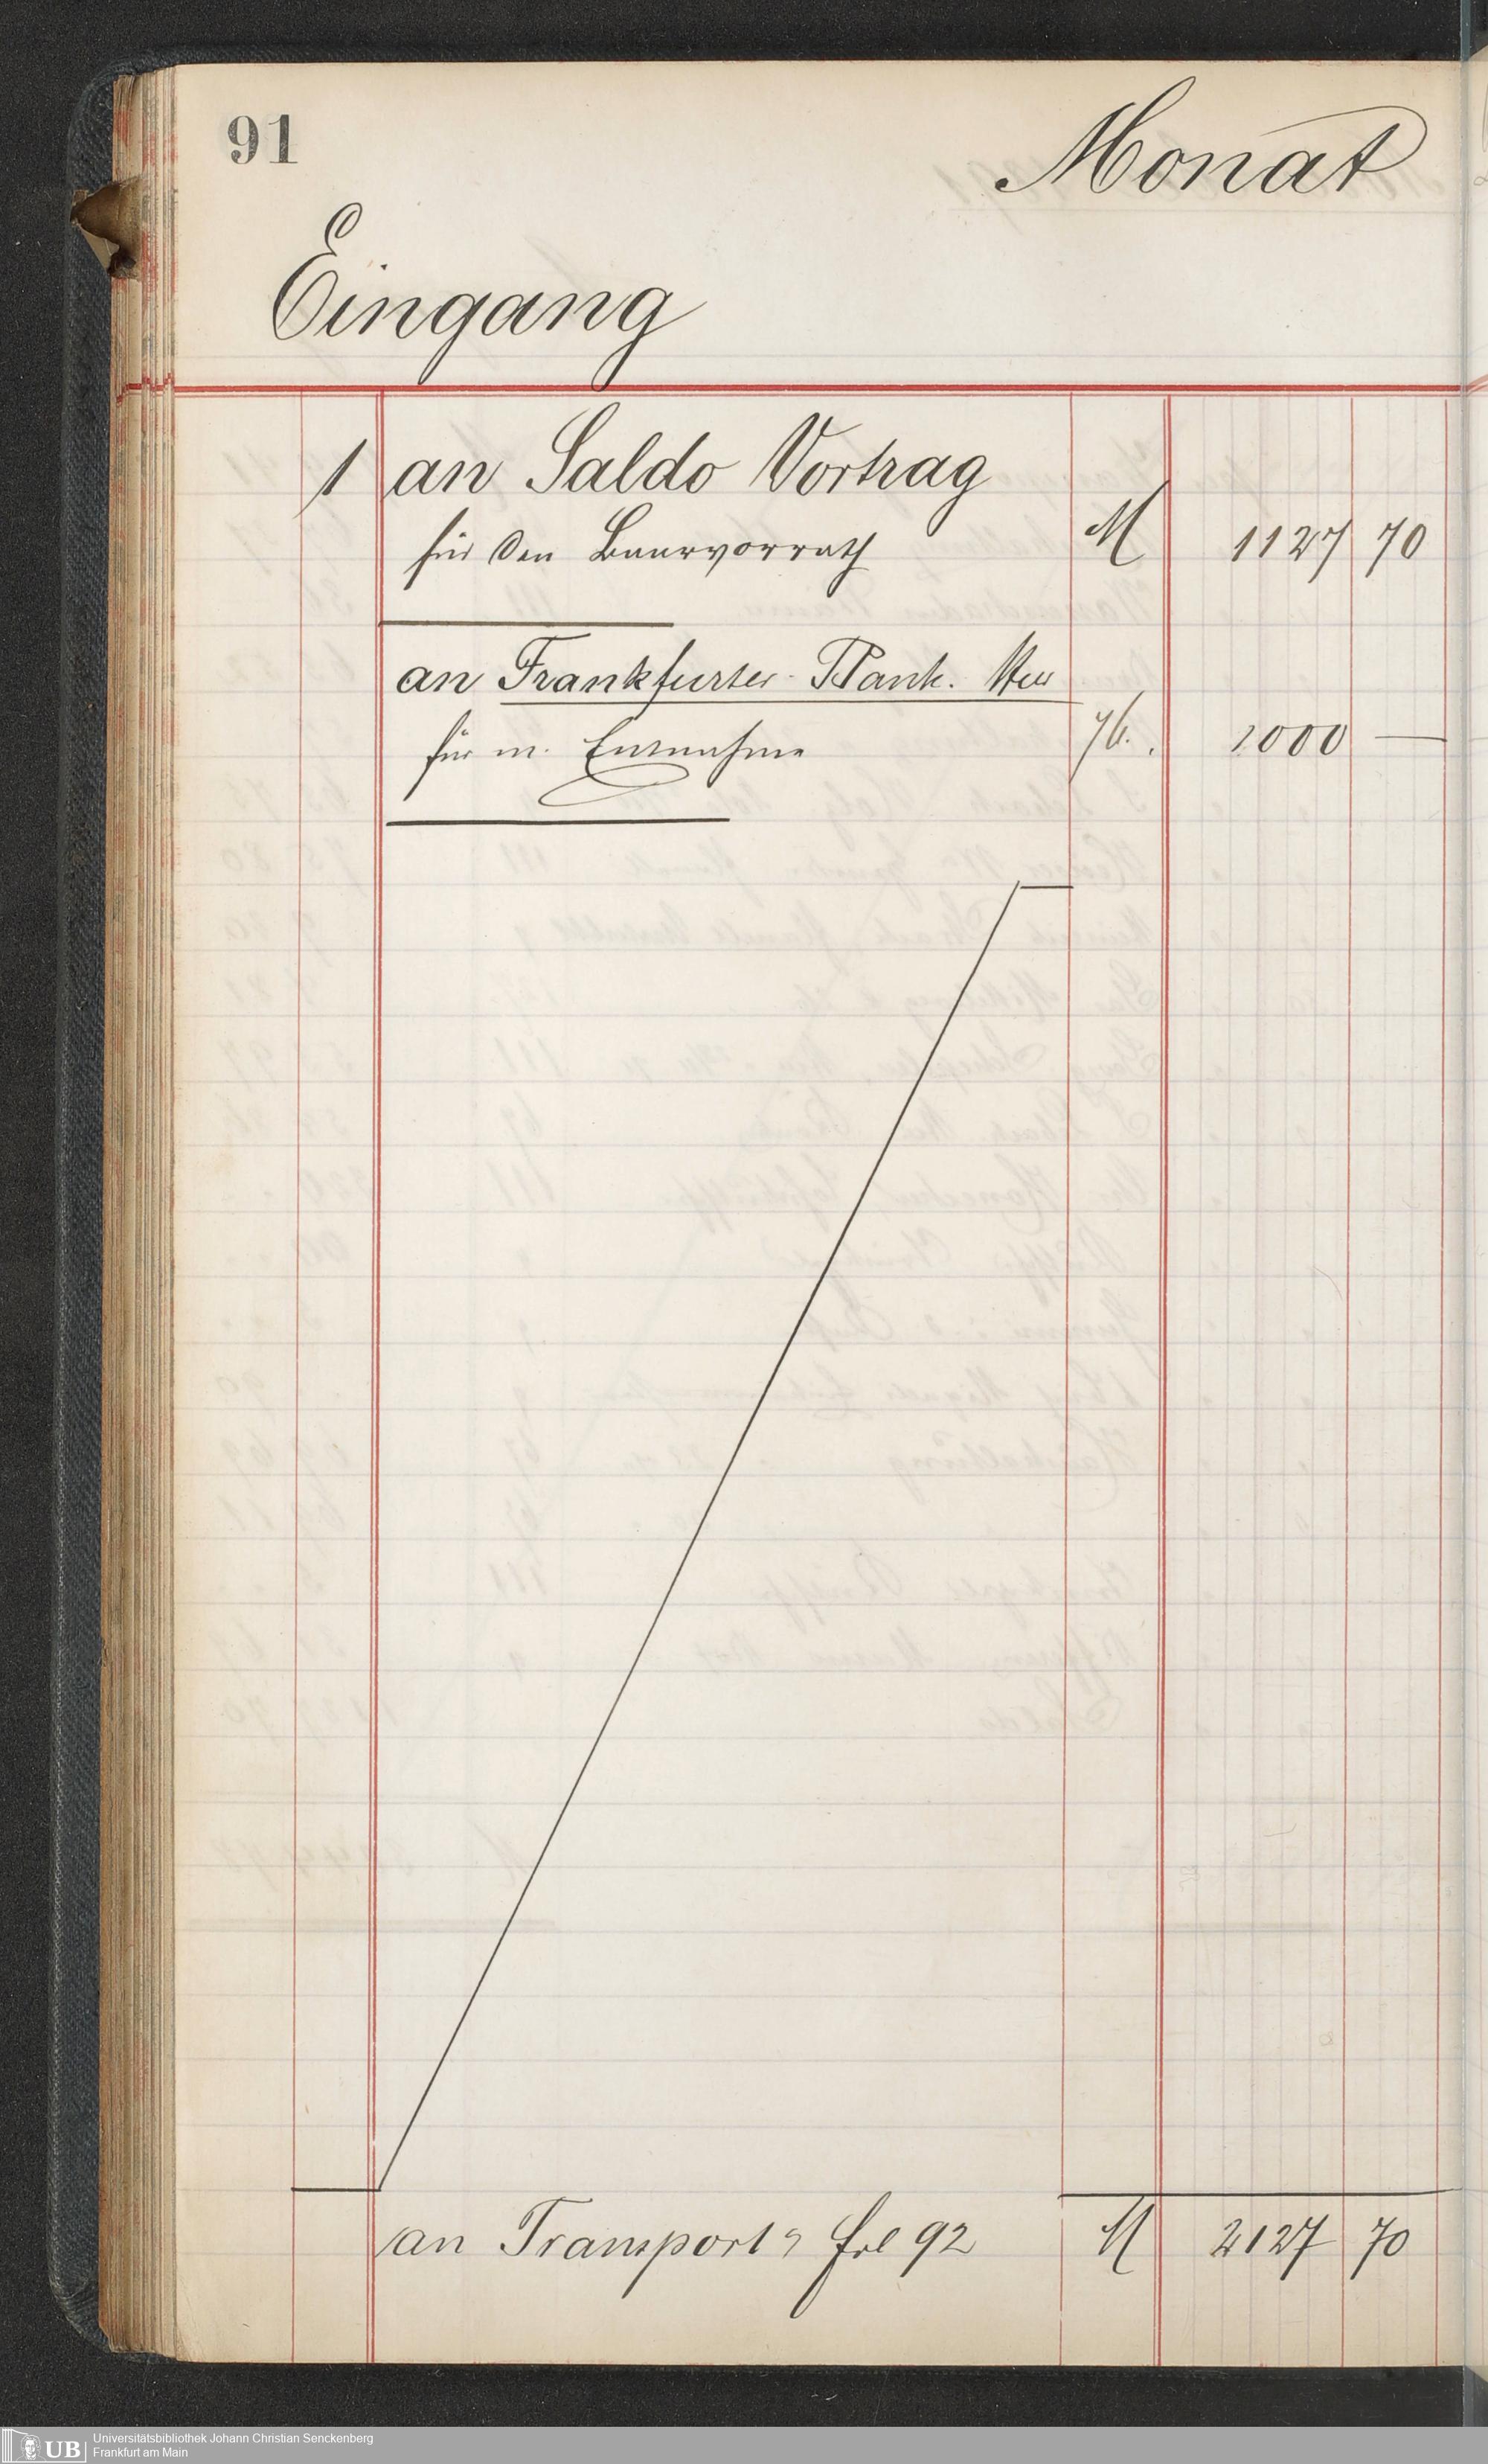 91
Monat
Eingang
1 an Saldo Vortrag
für den Baarvorrath M 1127 70
an Frankfurter Bank.
für m. Entnahme 76. 1000 —
an Transport fol 92 M 2127 70
UB Universitätsbibliothek Johann Christian Senckenberg
Frankfurt am Main